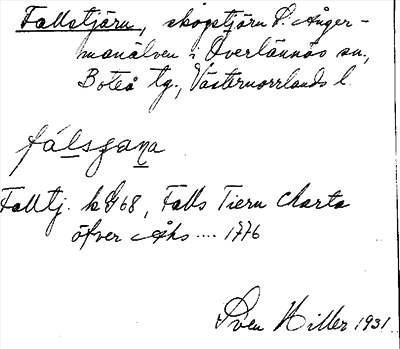 Fallstjärn, skogstjärn S. Ånger-
manälven i Överlännäs sn.,
Boteå tg., Västernorrlands l.
fálsgana
Falltj. k G68, Falls Tiern Charta
öfver Åhs .... 1776
Sven Hiller 1931.